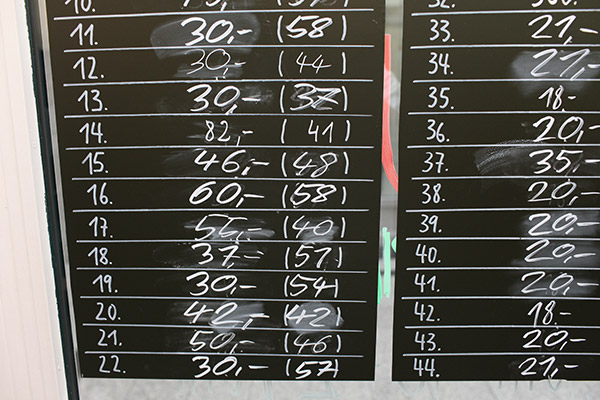 11. 30,- (58)
12. 30,- (44)
13. 30,- (37)
14. 82,- (41)
15. 46,- (48)
16. 60,- (58)
17. 55,- (40)
18. 37,- (57)
19. 30,- (54)
20. 42,- (42)
21. 50,- (46)
22. 30,- (57)
33. 27,-
34. 27,-
35. 18,-
36. 20,-
37. 35,-
38. 20,-
39. 20,-
40. 20,-
41. 20,-
42. 18,-
43. 20,-
44. 21,-